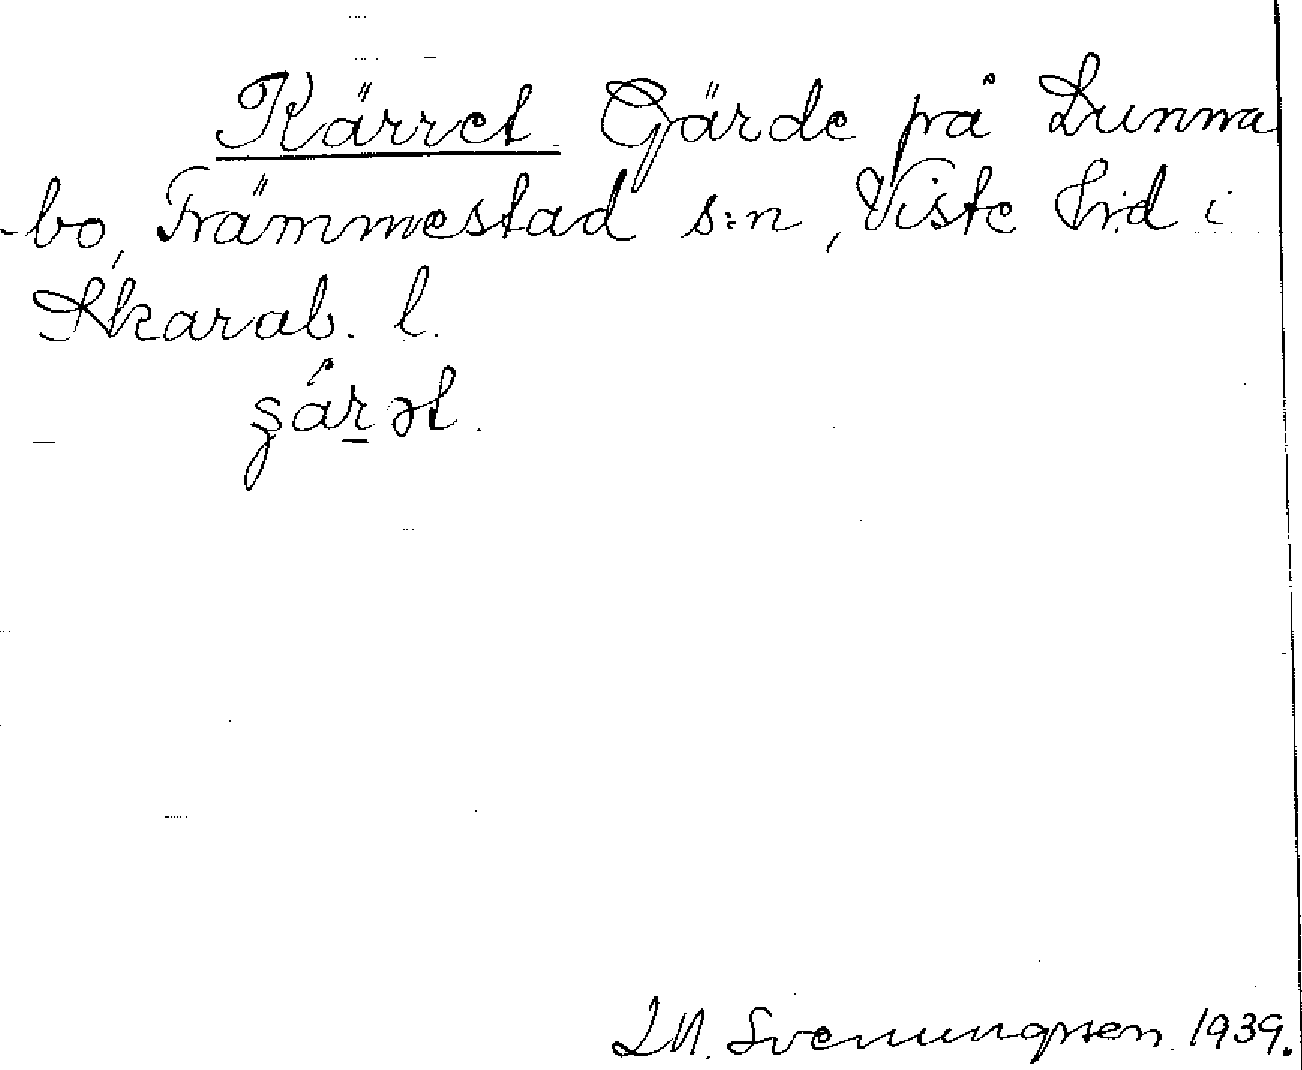 Kärret Gärde på Lunna
-bo, Främmestad s:n, Viste hrd i
Skarab. l.
M. Svenungssen 1939.